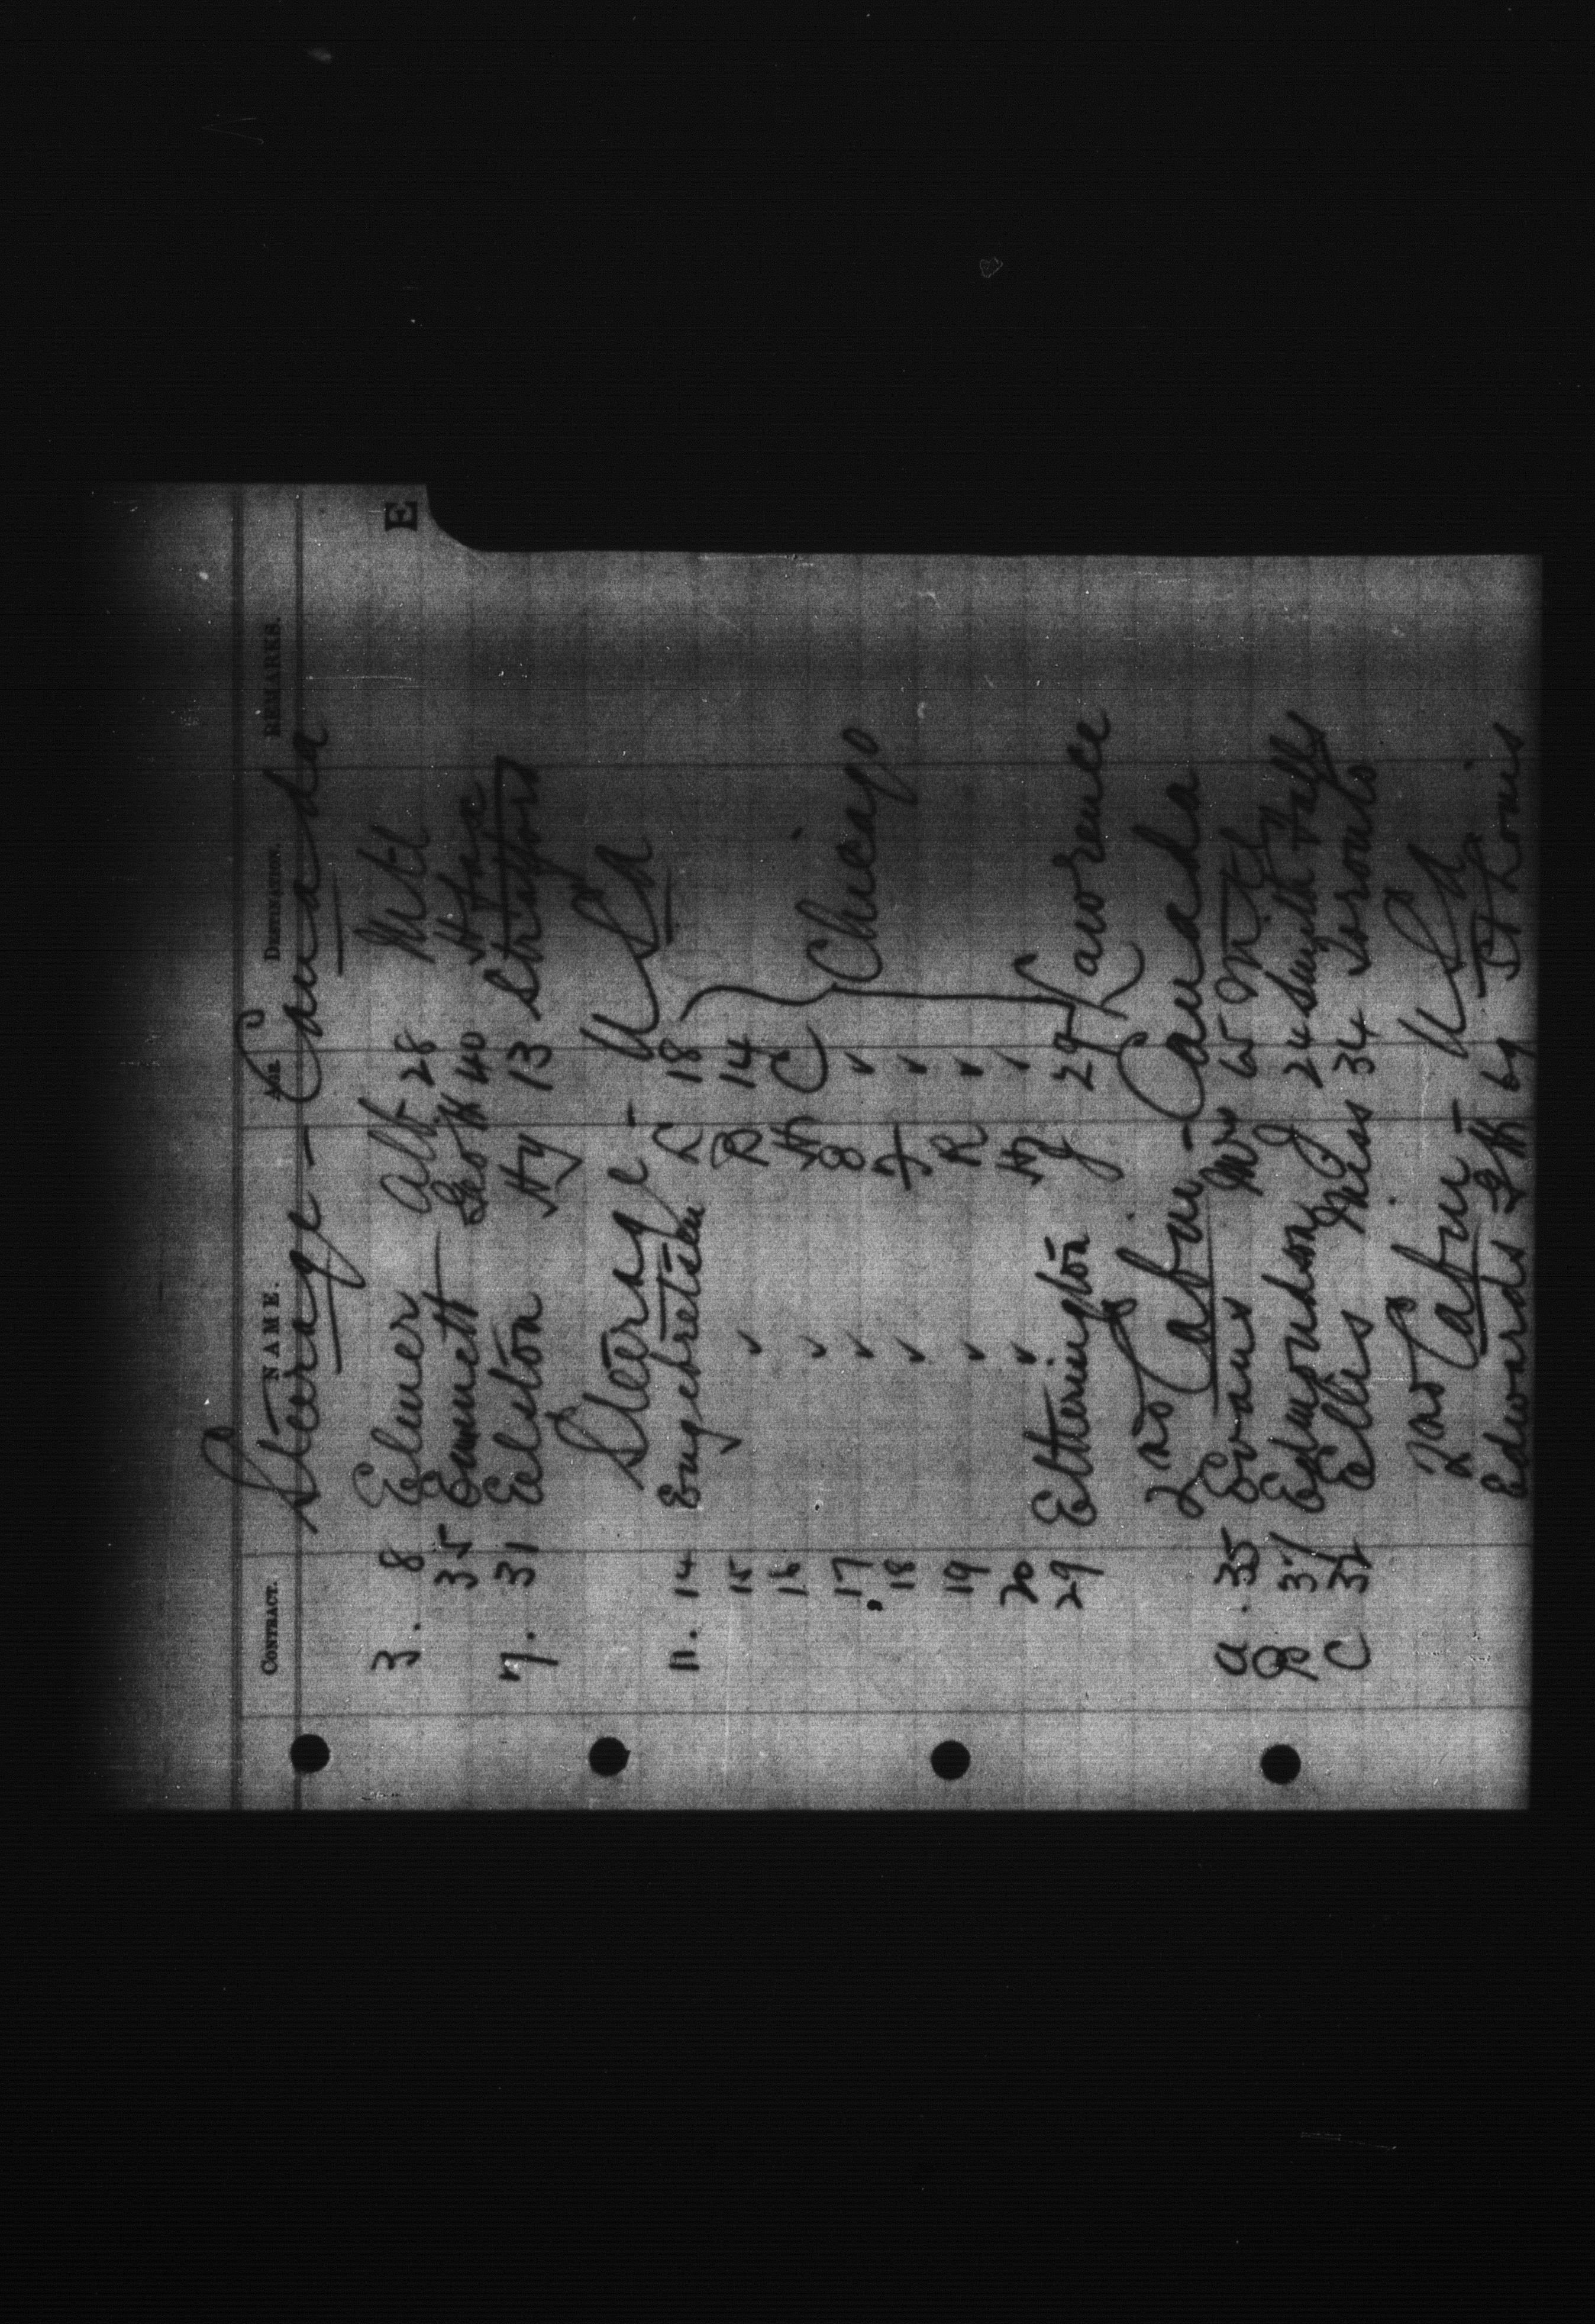 E
CONTRACT. NAME. AGE DESTINATION. REMARKS.
Steerage - Canada
3. 8 Elmer Alb 28 Mtl
35 Emmett Scott 40
7. 31 Eelton Hy 13 Stratford
Steerage - USA
11. 14 Engebretsen L 18
15 ✓ B 14
16 ✓ H C
17 ✓ ✓ Chicago
18 ✓ ✓
19 ✓ R ✓
20 ✓ Hy ✓
29 Etherington J 29 Lawrence
2nd Cabin - Canada
a. 35 Evans Mr 65 Mtl
B 37 Edmondson J 24 Smith Falls
C 32 Ellis Miss 34 Toronto
2nd Cabin - USA
Edwards 69 St Louis